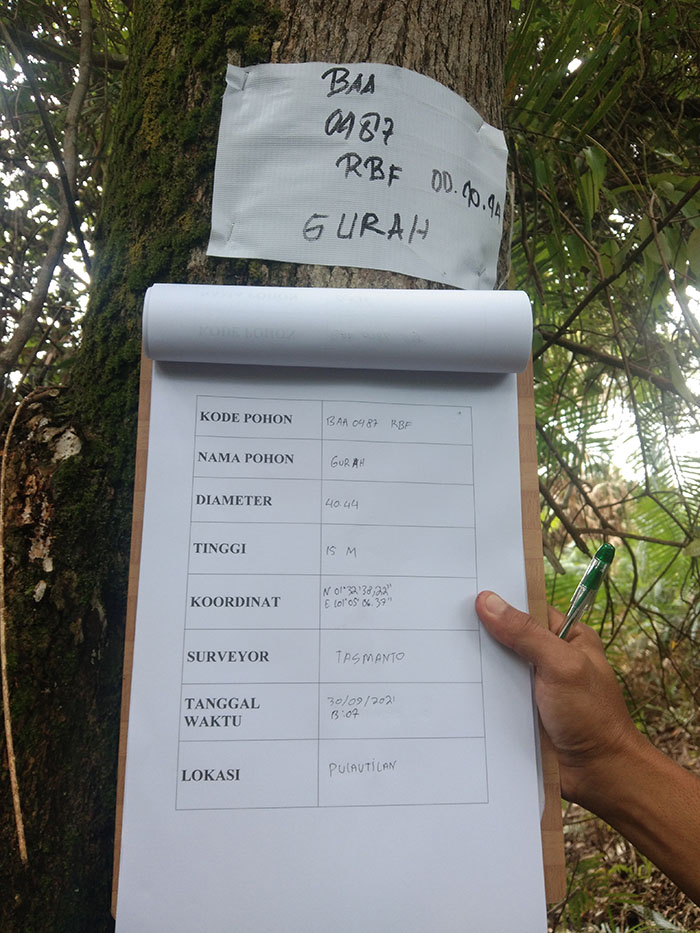 BAA
0487
RBF 00.40.44
GURAH
KODE POHON BAA 0487 RBF
NAMA POHON GURAH
DIAMETER 40.44
TINGGI 15 M
KOORDINAT N 01°32'38,22"
E 101°05'06.37"
SURVEYOR TASMANTO
TANGGAL 30/09/2021
WAKTU 13:07
LOKASI PULAUTILAN